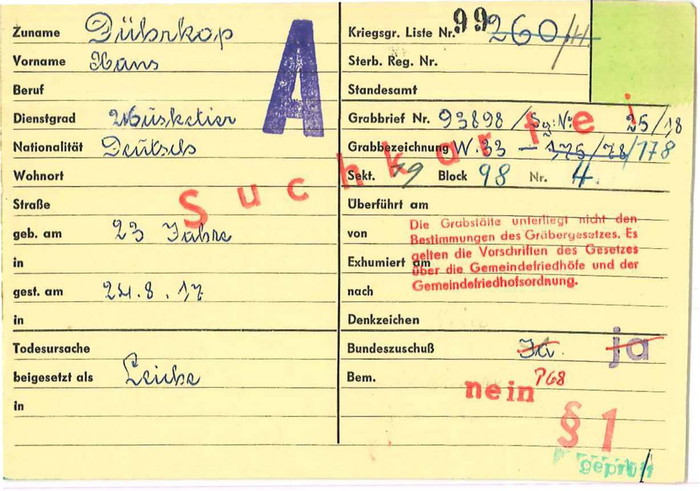 Zuname Dührkop
Vorname Hans
Beruf
Dienstgrad Musketier
Nationalität Deutsch
Wohnort
Straße
geb. am 23 Jahre
in
gest. am 24.8.17
in
Todesursache
beigesetzt als Leiche
in
A
Kriegsgr. Liste Nr. 99 260/
Sterb. Reg. Nr.
Standesamt
Grabbrief Nr. 93898/Sg. Nr. 25/18
Grabbezeichnung W. 33 – 176/78/178
Sekt. 19 Block 98 Nr. 4.
Suchkartei
Überführt am
von
Exhumiert am
nach
Die Grabstätte unterliegt nicht den
Bestimmungen des Gräbergesetzes. Es
gelten die Vorschriften des Gesetzes
über die Gemeindefriedhöfe und der
Gemeindefriedhofsordnung.
Denkzeichen
Bundeszuschuß Ja. ja
Bem. P68
nein
§ 1
geprüft